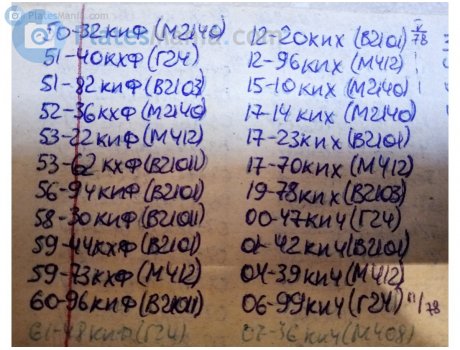 PlatesMania.com
50-32 КИФ (М2140)
51-40 КХФ (Г24)
51-82 КИФ (В2103)
52-36 КХФ (М2140)
53-22 КИФ (М412)
53-62 КХФ (В21011)
56-94 КИФ (В2101)
58-30 КИФ (В21011)
59-44 КХФ (В2101)
59-73 КХФ (М412)
60-96 КИФ (В21011)
61-48 КИФ (Г24)
12-20 КИХ (В2101) V/78
12-96 КИХ (М412)
15-10 КИХ (М2140)
17-14 КИХ (М2140)
17-23 КИХ (В2101)
17-70 КИХ (М412)
19-78 КИХ (В2103)
00-47 КИЧ (Г24)
01-42 КИЧ (В2101)
04-39 КИЧ (М412)
06-99 КИЧ (Г24) VI/78
07-36 КИЧ (М408)